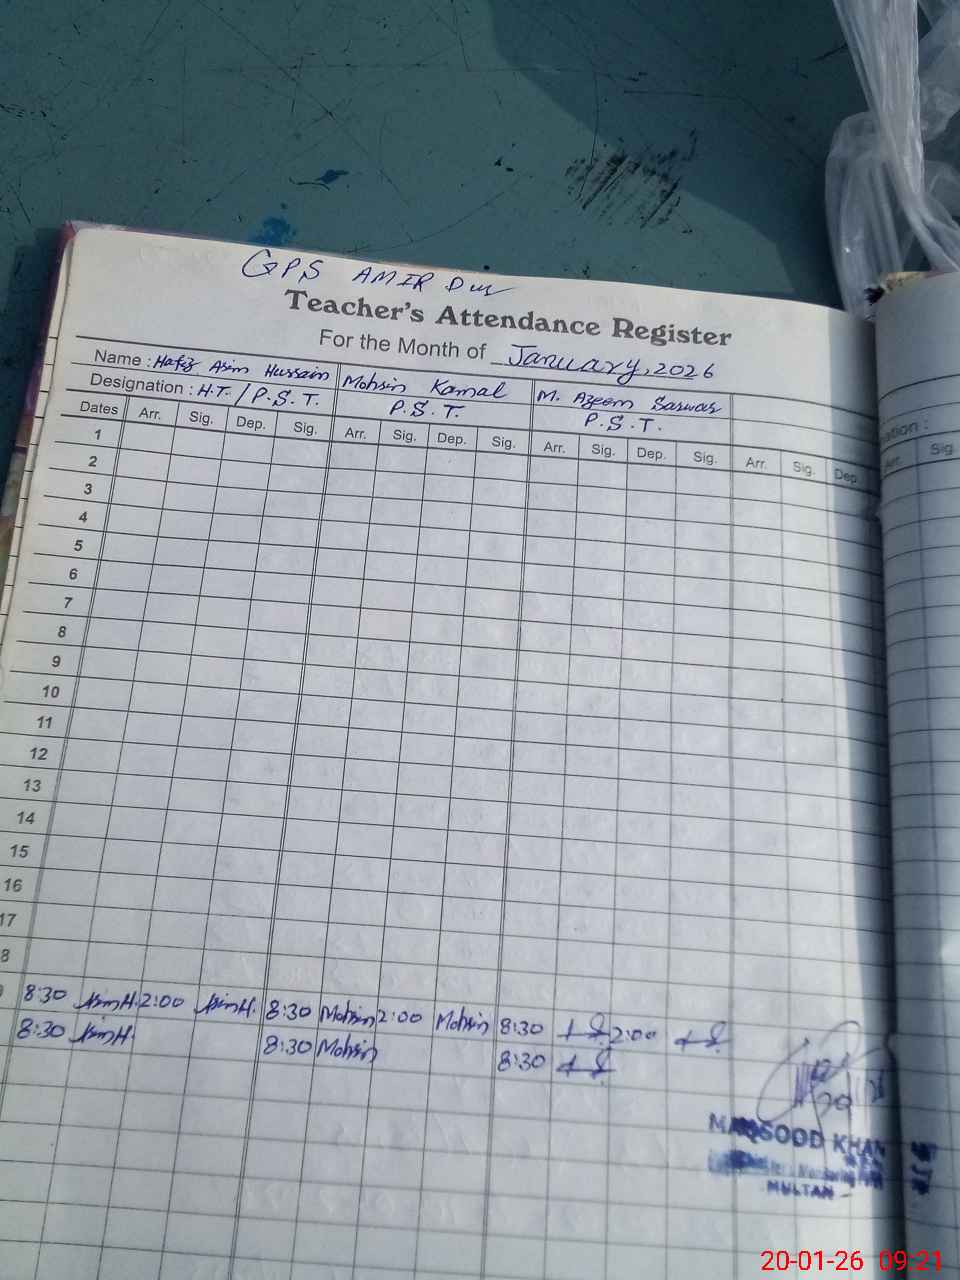 GPS AMIR Pur
Teacher's Attendance Register
For the Month of January, 2026
Name : Hafiz Asim Hussain Mohsin Kamal M. Azeem Sarwar
Designation : H.T. / P.S.T. P.S.T. P.S.T.
Dates Arr. Sig. Dep. Sig. Arr. Sig. Dep. Sig. Arr. Sig. Dep. Sig. Arr. Sig. Dep. Sig.
1
2
3
4
5
6
7
8
9
10
11
12
13
14
15
16
17
8
8:30 Asim H. 2:00 Asim H. 8:30 Mohsin 2:00 Mohsin 8:30 2:00
8:30 Asim H. 8:30 Mohsin 8:30
MAQSOOD KHAN
Monitoring
MULTAN
20-01-26 09:21